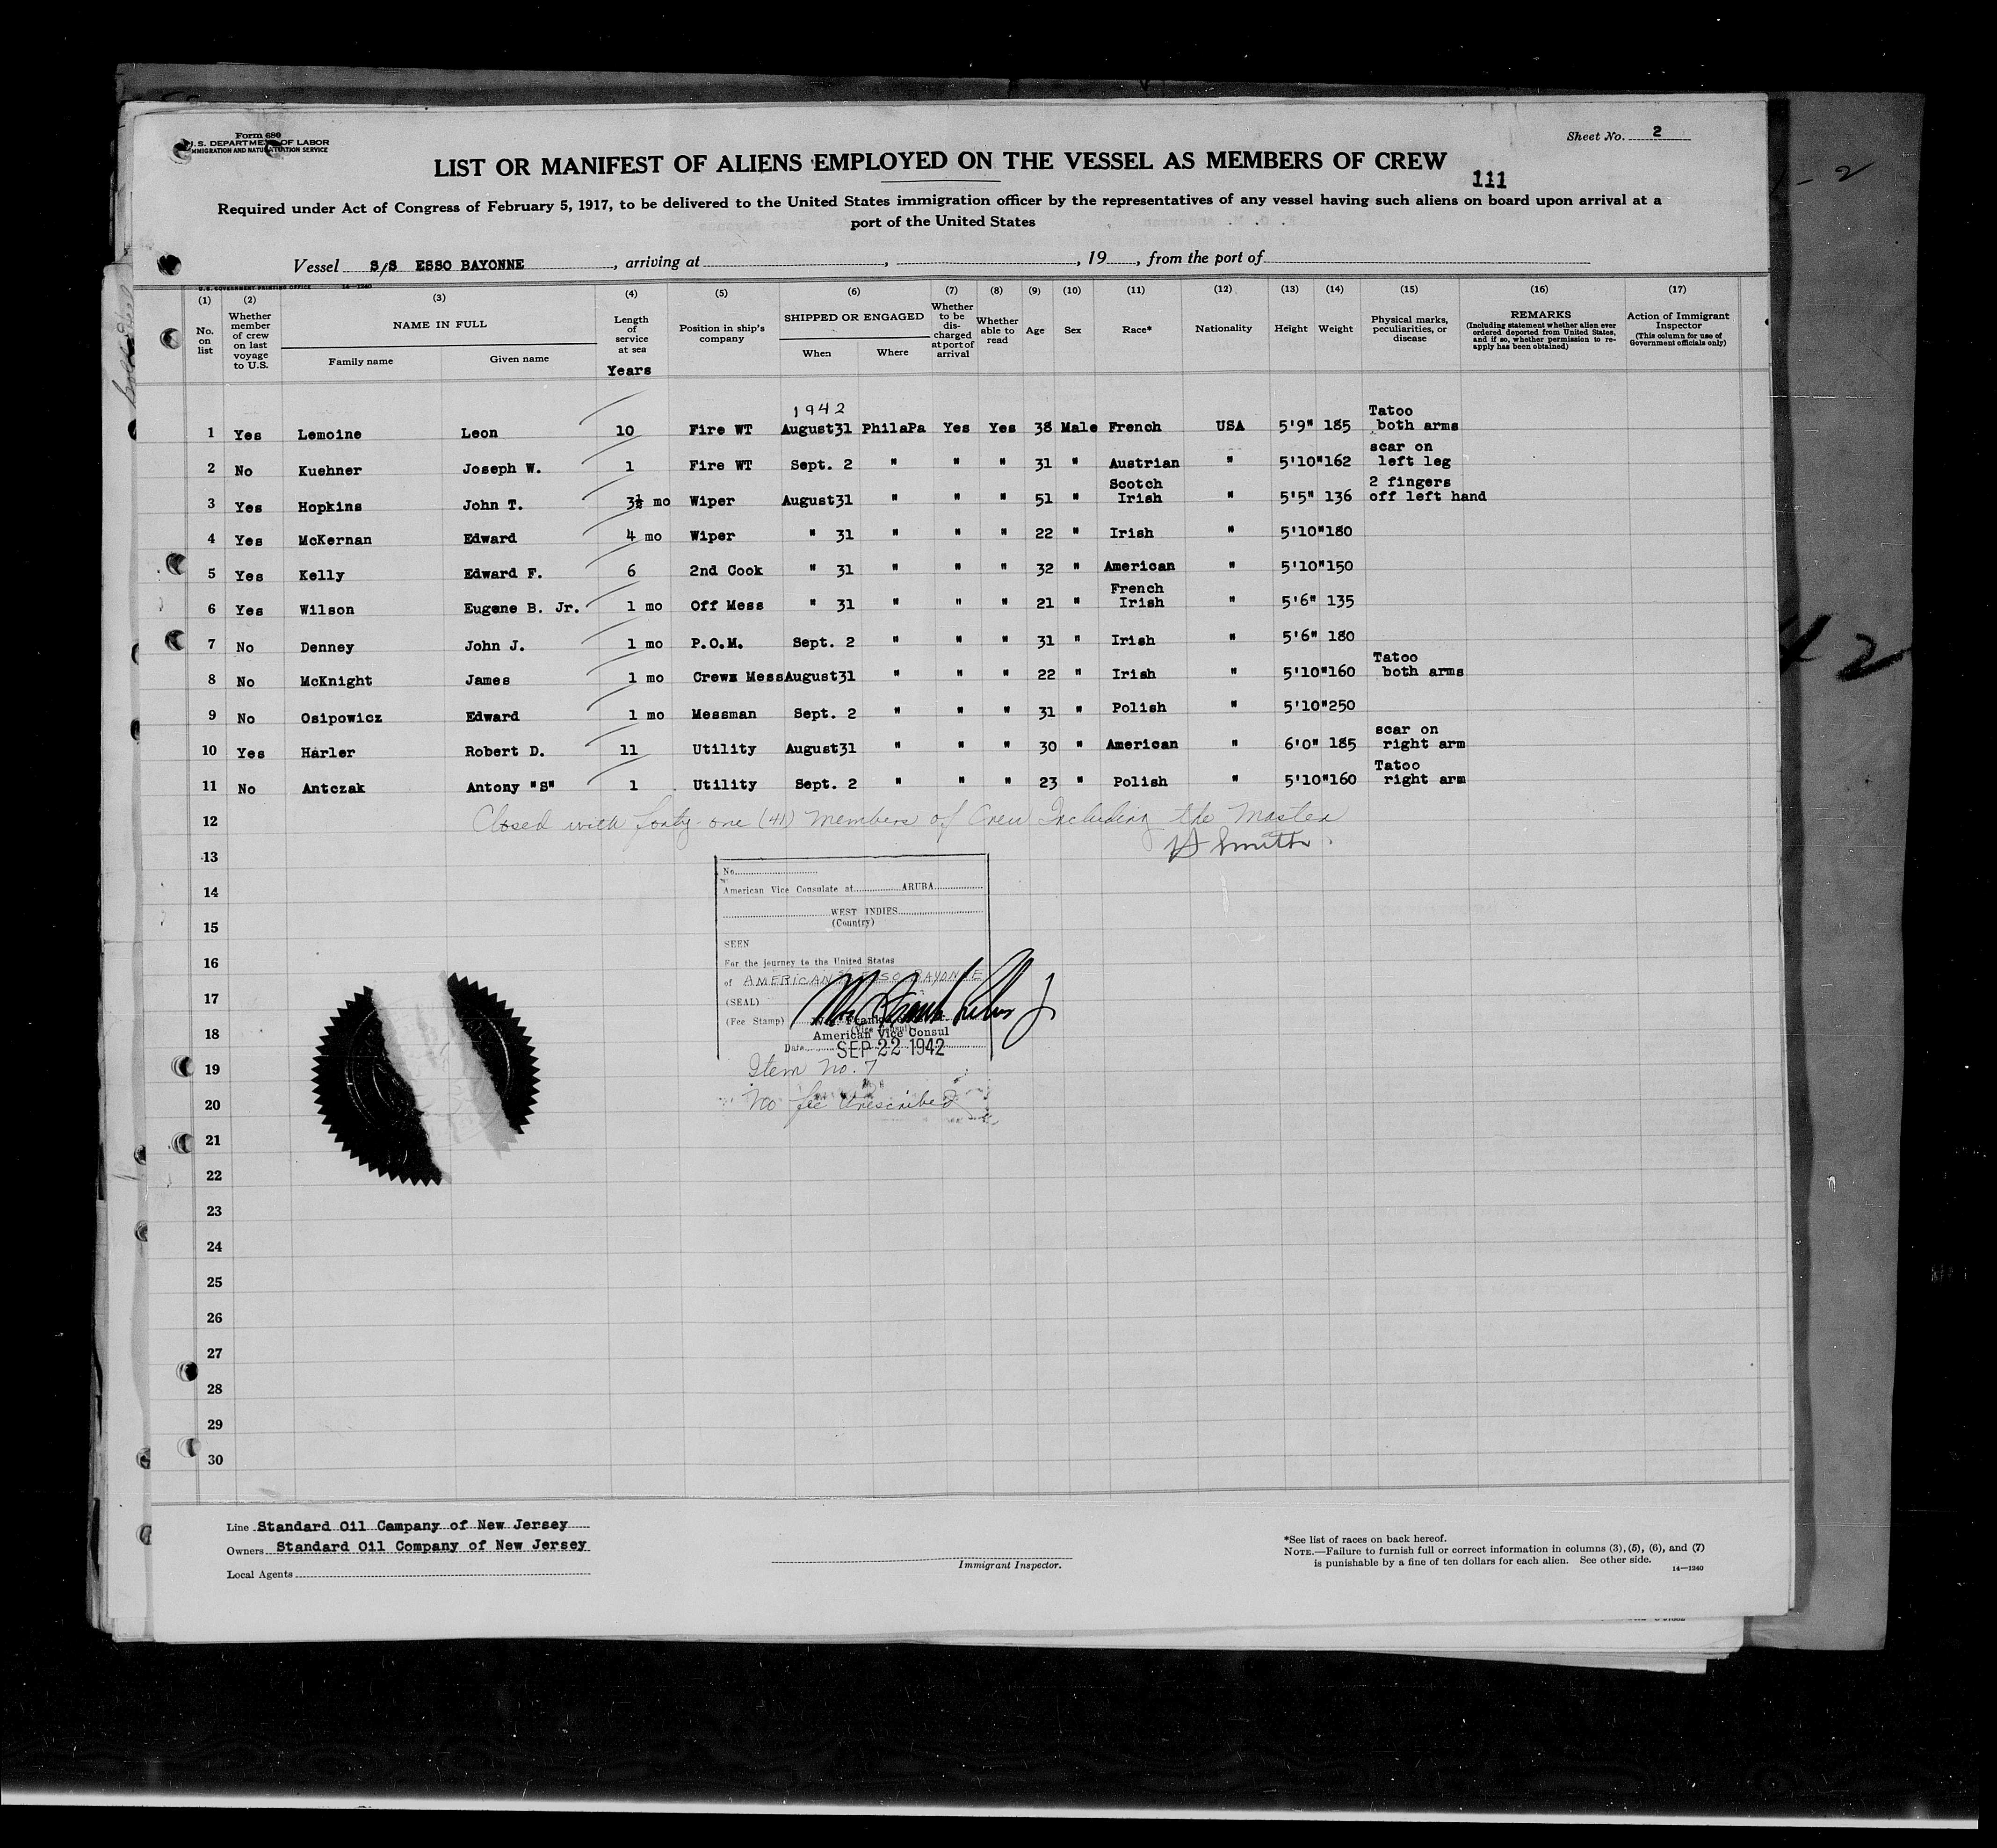 Form 680
U.S. DEPARTMENT OF LABOR
IMMIGRATION AND NATURALIZATION SERVICE
Sheet No. 2
LIST OR MANIFEST OF ALIENS EMPLOYED ON THE VESSEL AS MEMBERS OF CREW
111
Required under Act of Congress of February 5, 1917, to be delivered to the United States immigration officer by the representatives of any vessel having such aliens on board upon arrival at a
port of the United States
Vessel S/S ESSO BAYONNE, arriving at , , 19 , from the port of
U.S. GOVERNMENT PRINTING OFFICE 14—1240
(1) (2) (3) (4) (5) (6) (7) (8) (9) (10) (11) (12) (13) (14) (15) (16) (17)
No. on list
Whether member of crew on last voyage to U.S.
NAME IN FULL
Family name
Given name
Length of service at sea
Years
Position in ship's company
SHIPPED OR ENGAGED
When
Where
Whether to be discharged at port of arrival
Whether able to read
Age
Sex
Race*
Nationality
Height
Weight
Physical marks, peculiarities, or disease
REMARKS
(Including statement whether alien ever ordered deported from United States, and if so, whether permission to reapply has been obtained)
Action of Immigrant Inspector
(This column for use of Government officials only)
1942
1 Yes Lemoine Leon 10 Fire WT August31 PhilaPa Yes Yes 38 Male French USA 5'9" 185 Tatoo both arms
2 No Kuehner Joseph W. 1 Fire WT Sept. 2 " " " 31 " Austrian " 5'10" 162 scar on left leg
3 Yes Hopkins John T. 3½ mo Wiper August31 " " " 51 " Scotch Irish " 5'5" 136 2 fingers off left hand
4 Yes McKernan Edward 4 mo Wiper " 31 " " " 22 " Irish " 5'10" 180
5 Yes Kelly Edward F. 6 2nd Cook " 31 " " " 32 " American " 5'10" 150
6 Yes Wilson Eugene B. Jr. 1 mo Off Mess " 31 " " " 21 " French Irish " 5'6" 135
7 No Denney John J. 1 mo P.O.M. Sept. 2 " " " 31 " Irish " 5'6" 180
8 No McKnight James 1 mo Crewx Mess August31 " " " 22 " Irish " 5'10" 160 Tatoo both arms
9 No Osipowicz Edward 1 mo Messman Sept. 2 " " " 31 " Polish " 5'10" 250
10 Yes Harler Robert D. 11 Utility August31 " " " 30 " American " 6'0" 185 scar on right arm
11 No Antczak Antony "S" 1 Utility Sept. 2 " " " 23 " Polish " 5'10" 160 Tatoo right arm
12 Closed with forty-one (41) Members of Crew Including the Master
Smith
13
No.
14
American Vice Consulate at ARUBA
WEST INDIES
(Country)
15
SEEN
16
For the journey to the United States
of AMERICAN S/S ESSO BAYONNE
17
(SEAL)
(Fee Stamp)
(Vice Consul)
18
American Vice Consul
Date SEP 22 1942
19
Item No. 7
20
No fee prescribed
21
22
23
24
25
26
27
28
29
30
Line Standard Oil Campany of New Jersey
Owners Standard Oil Company of New Jersey
Local Agents
Immigrant Inspector.
*See list of races on back hereof.
NOTE.—Failure to furnish full or correct information in columns (3), (5), (6), and (7)
is punishable by a fine of ten dollars for each alien. See other side.
14—1240